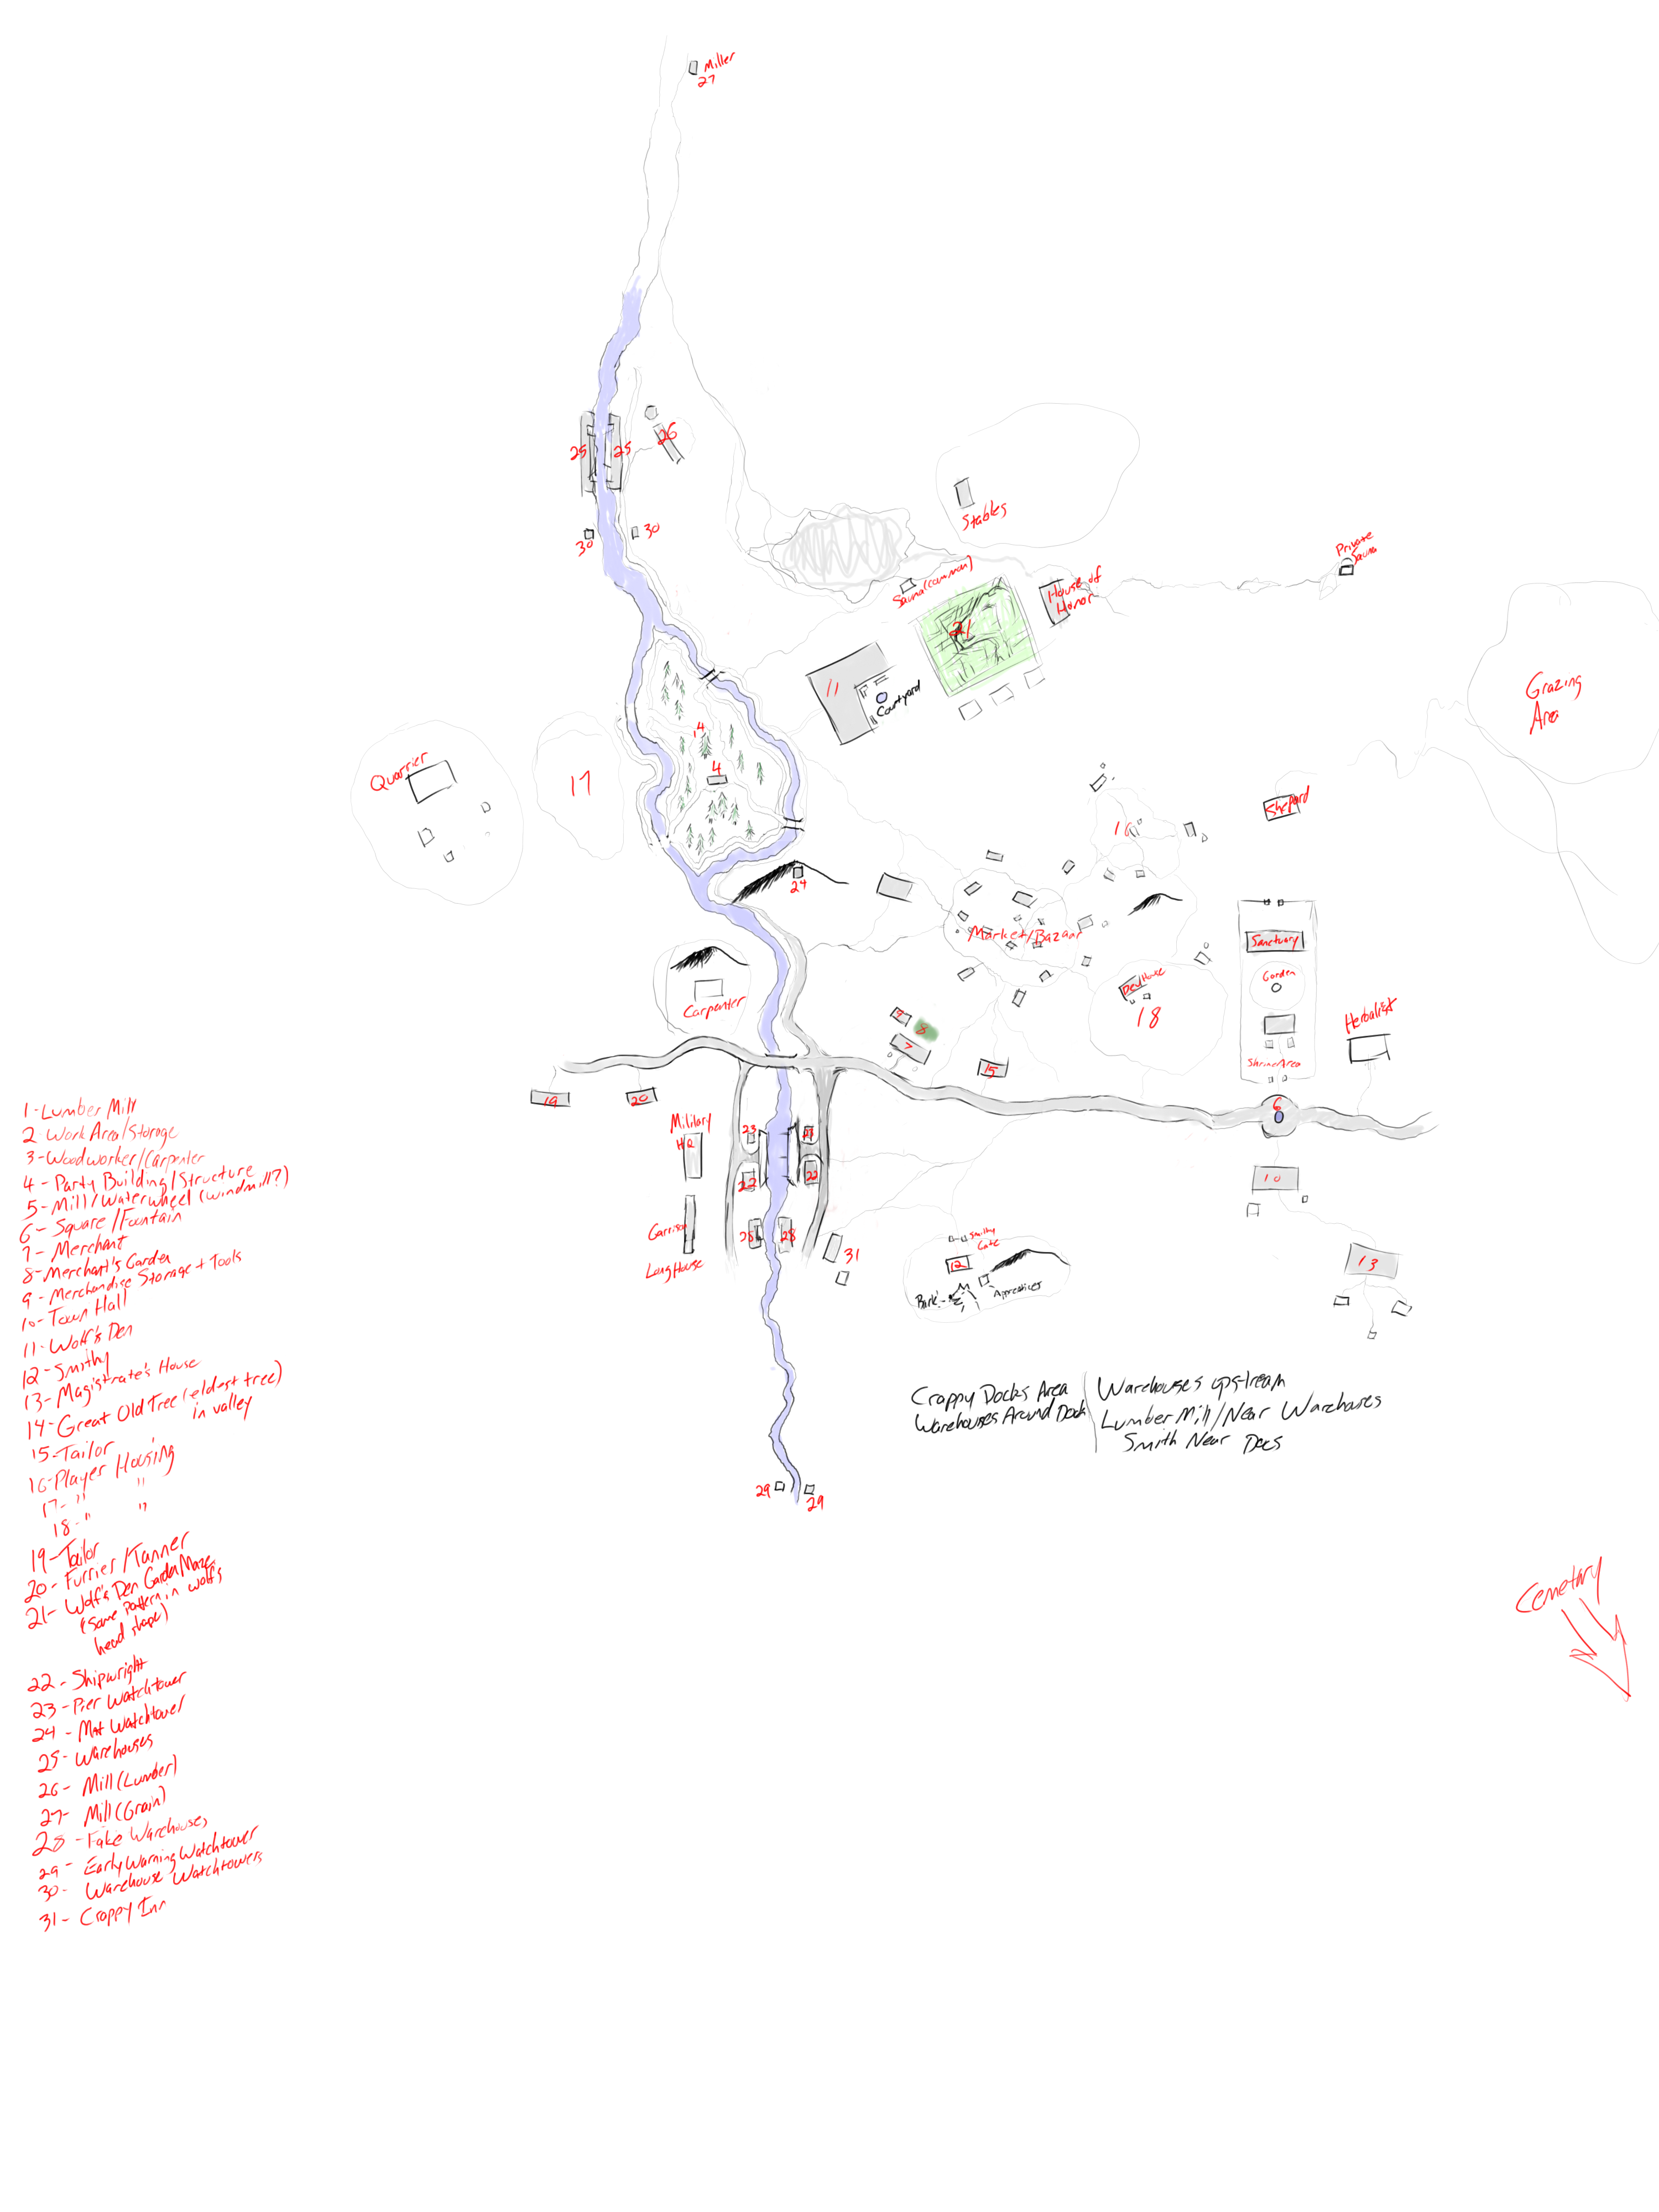 Miller
27
25
25
26
30
30
Stables
Private
Sauna
Sauna (common)
House of
Honor
21
11
Courtyard
Grazing
Area
14
4
Quarrier
17
24
16
Shepard
Market/Bazaar
Sanctuary
Garden
Shrine Area
Herbalist
Carpenter
9
8
7
15
Dev House
18
6
19
20
Military
HQ
23
23
22
22
10
Garrison
Long House
28
28
31
Smithy
Gate
12
Apprentices
13
29
29
Crappy Docks Area
Warehouses Around Dock
Warehouses Upstream
Lumber Mill/Near Warehouses
Smith Near Docs
Cemetary
1-Lumber Mill
2 Work Area/Storage
3-Woodworker/Carpenter
4-Party Building/Structure
5-Mill/Waterwheel (windmill?)
6-Square/Fountain
7-Merchant
8-Merchant's Garden
9-Merchandise Storage + Tools
10-Town Hall
11-Wolf's Den
12-Smithy
13-Magistrate's House
14-Great Old Tree (eldest tree)
in valley
15-Tailor
16-Player Housing
17- " "
18- " "
19-Tailor
20-Furrier/Tanner
21-Wolf's Den Garden Maze
(same pattern in wolfs
head shape)
22-Shipwright
23-Pier Watchtower
24-Mnt Watchtower
25-Warehouses
26-Mill (Lumber)
27-Mill (Grain)
28-Fake Warehouses
29-Early Warning Watchtower
30-Warehouse Watchtowers
31-Crappy Inn